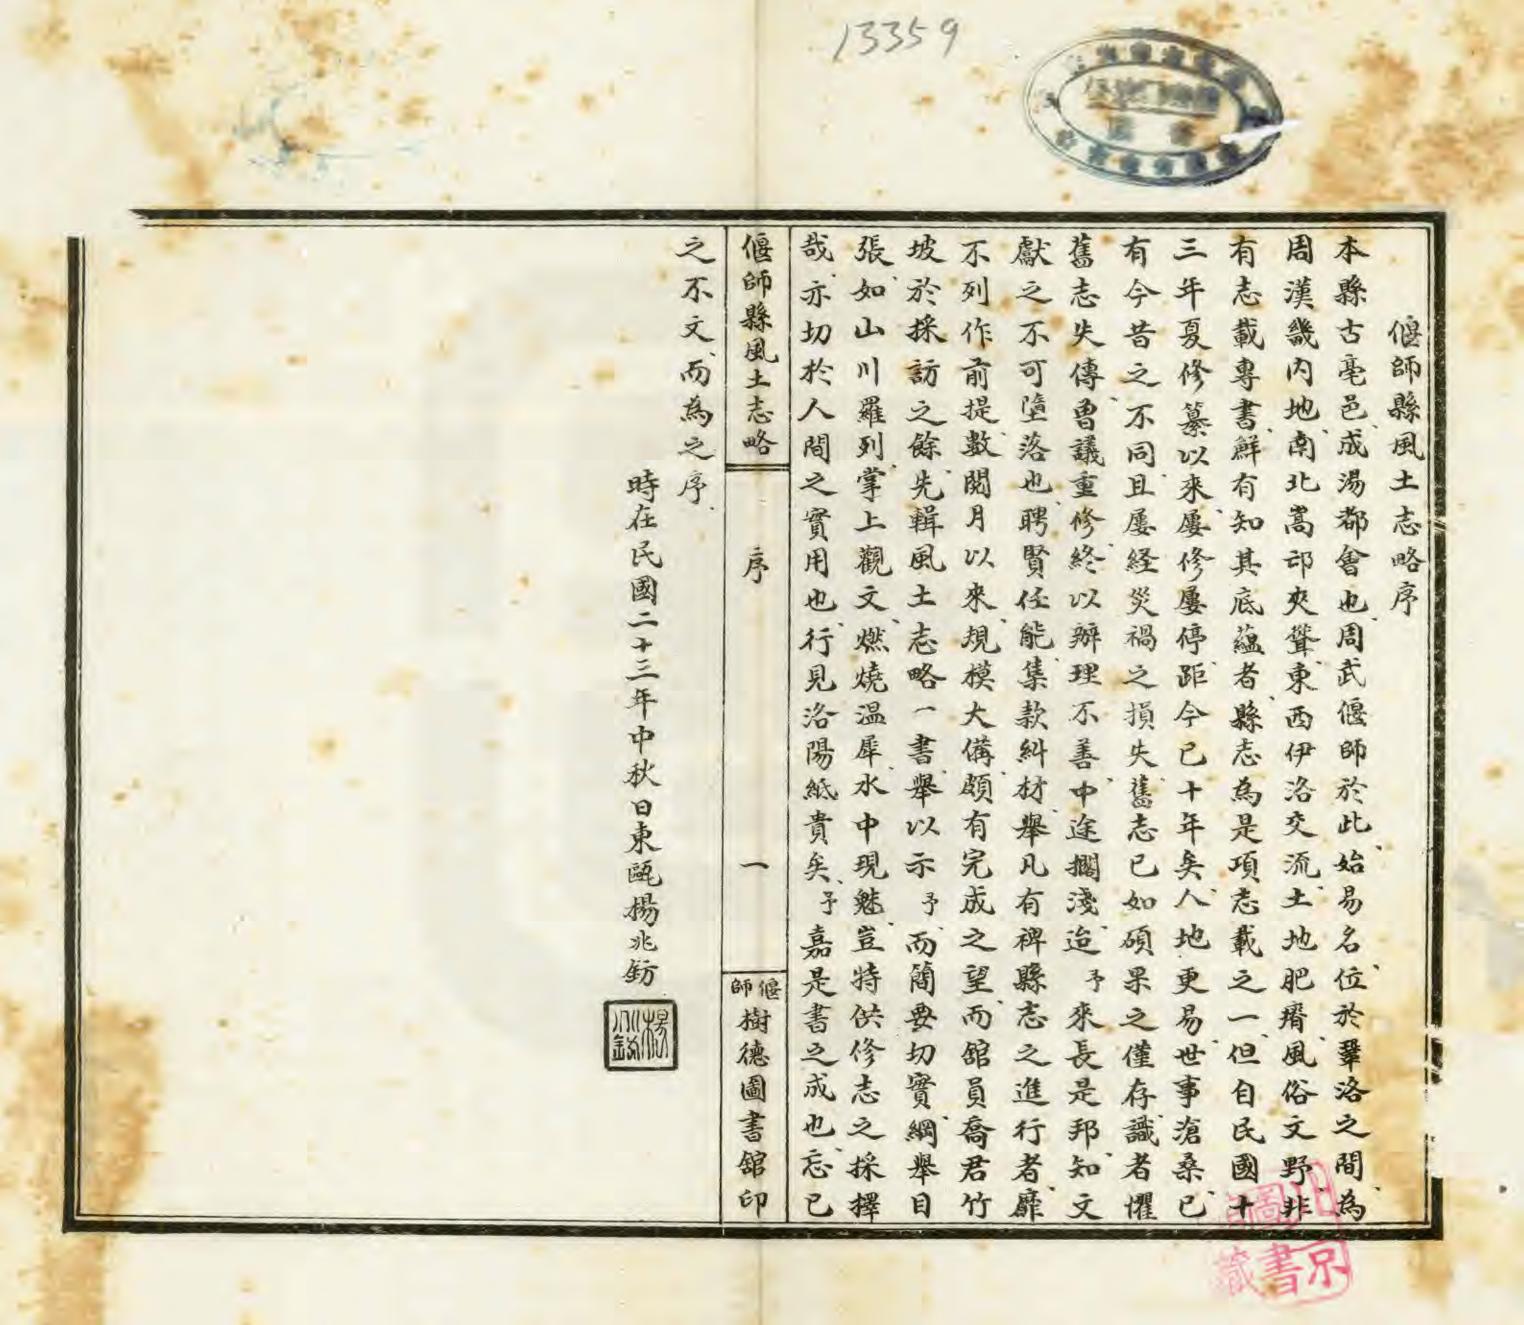 13359
偃師縣風土志略序
本縣古亳邑成湯都會也周武偃師於此始易名位於鞏洛之間為
周漢畿内地南北嵩邙夾聳東西伊洛交流土地肥瘠風俗文野非
有志載專書鮮有知其底蘊者縣志為是項志載之一但自民國十
三年夏修纂以來屢修屢停距今已十年矣人地更易世事滄桑已
有今昔之不同且屢経災禍之損失舊志已如碩果之僅存識者懼
舊志失傳曾議重修終以辦理不善中途擱淺迨予來長是邦知文
獻之不可墮落也聘賢任能集款糾材舉凡有裨縣志之進行者靡
不列作前提數閱月以來規模大備頗有完成之望而舘員喬君竹
坡於採訪之餘先輯風土志略一書舉以示予而簡要切實綱舉目
張如山川羅列掌上觀文燃燒温犀水中現魅豈特供修志之採擇
哉亦切於人間之實用也行見洛陽紙貴矣予嘉是書之成也忘已
偃師縣風土志略
序
一
偃師樹德圖書舘印
之不文而為之序
時在民國二十三年中秋日東甌楊兆鈁